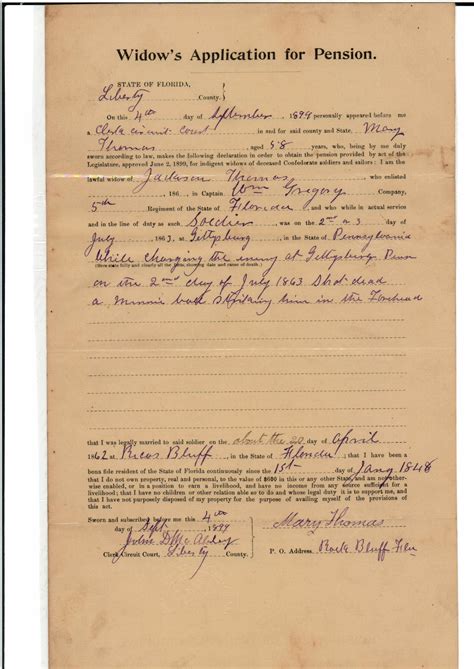 Widow's Application for Pension.
STATE OF FLORIDA,
Liberty County.
On this 4th day of September 1899 personally appeared before me
a Clerk circuit court in and for said county and State, Mary
Thomas aged 58 years, who, being by me duly
sworn according to law, makes the following declaration in order to obtain the pension provided by act of the
Legislature, approved June 2, 1899, for indigent widows of deceased Confederate soldiers and sailors: I am the
lawful widow of Jackson Thomas who enlisted
186 , in Captain Wm Gregory Company,
5th Regiment of the State of Florida, and who while in actual service
and in the line of duty as such Soldier was on the 2nd or 3 day of
July 1863, at Gettysburg, in the State of Pennsylvania
while charging the enemy at Gettysburg Penn
(Here state fully and clearly all the facts, showing date and cause of death.)
on the 2nd day of July 1863 Shot dead
a minnie ball striking him in the Forehead
that I was legally married to said soldier on the about the 20 day of April
1862 at Ricos Bluff, in the State of Florida; that I have been a
bona fide resident of the State of Florida continuously since the 1st day of Jany 1848
that I do not own property, real and personal, to the value of $600 in this or any other State, and am not other-
wise enabled, or in a position to earn a livelihood, and have no income from any source sufficient for a
livelihood; that I have no children or other relation able so to do and whose legal duty it is to support me, and
that I have not purposely disposed of my property for the purpose of availing myself of the provisions of this
act.
Sworn and subscribed before me this 4th
day of Sept 1899
Mary Thomas
Clerk Circuit Court, Liberty County.
P. O. Address. Rock Bluff Fla